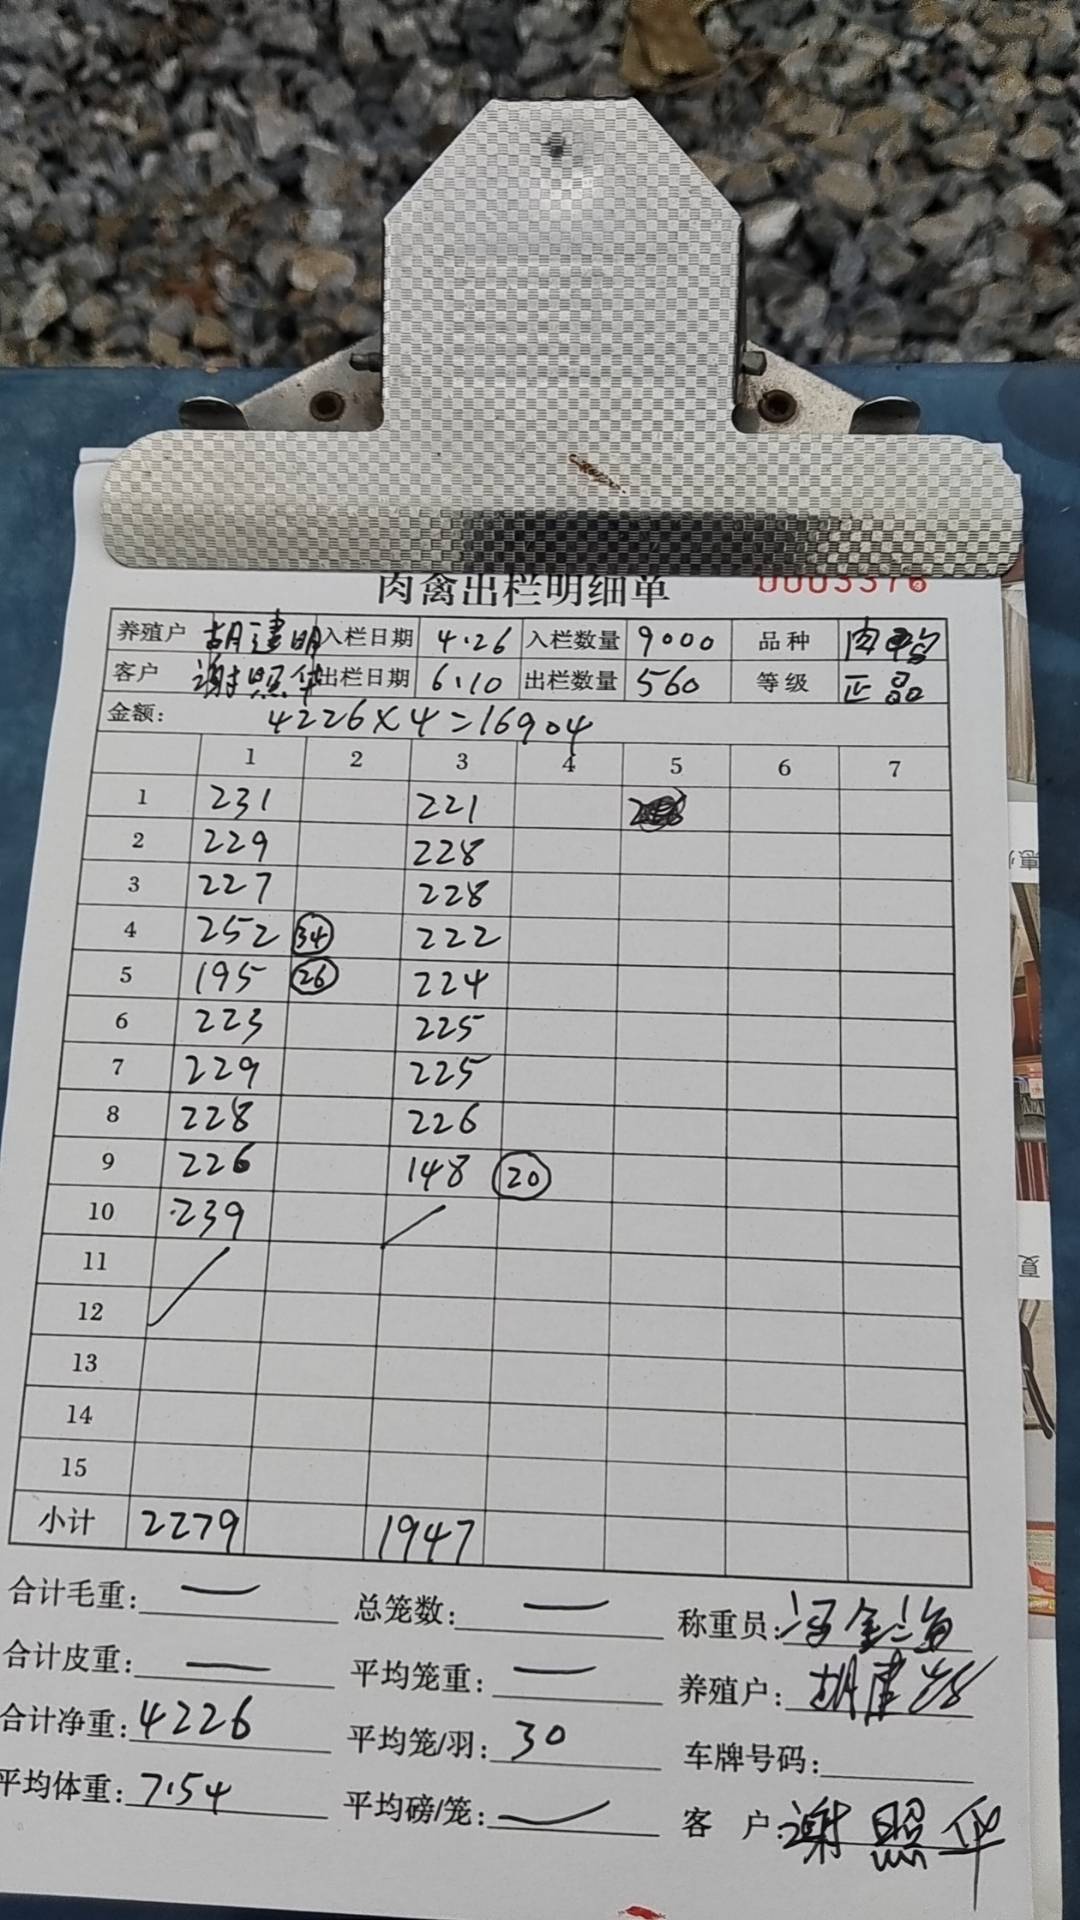 肉禽出栏明细单 0003376
养殖户 胡建明 入栏日期 4.26 入栏数量 9000 品种 肉鸭
客户 谢照华 出栏日期 6.10 出栏数量 560 等级 正品
金额: 4226×4=16904
1 2 3 4 5 6 7
1 231 221
2 229 228
3 227 228
4 252 34 222
5 195 26 224
6 223 225
7 229 225
8 228 226
9 226 148 20
10 239
11
12
13
14
15
小计 2279 1947
合计毛重: — 总笼数: — 称重员:
合计皮重: — 平均笼重: — 养殖户: 胡建明
合计净重: 4226 平均笼/羽: 30 车牌号码:
平均体重: 7.54 平均磅/笼: 客户: 谢照华
夏